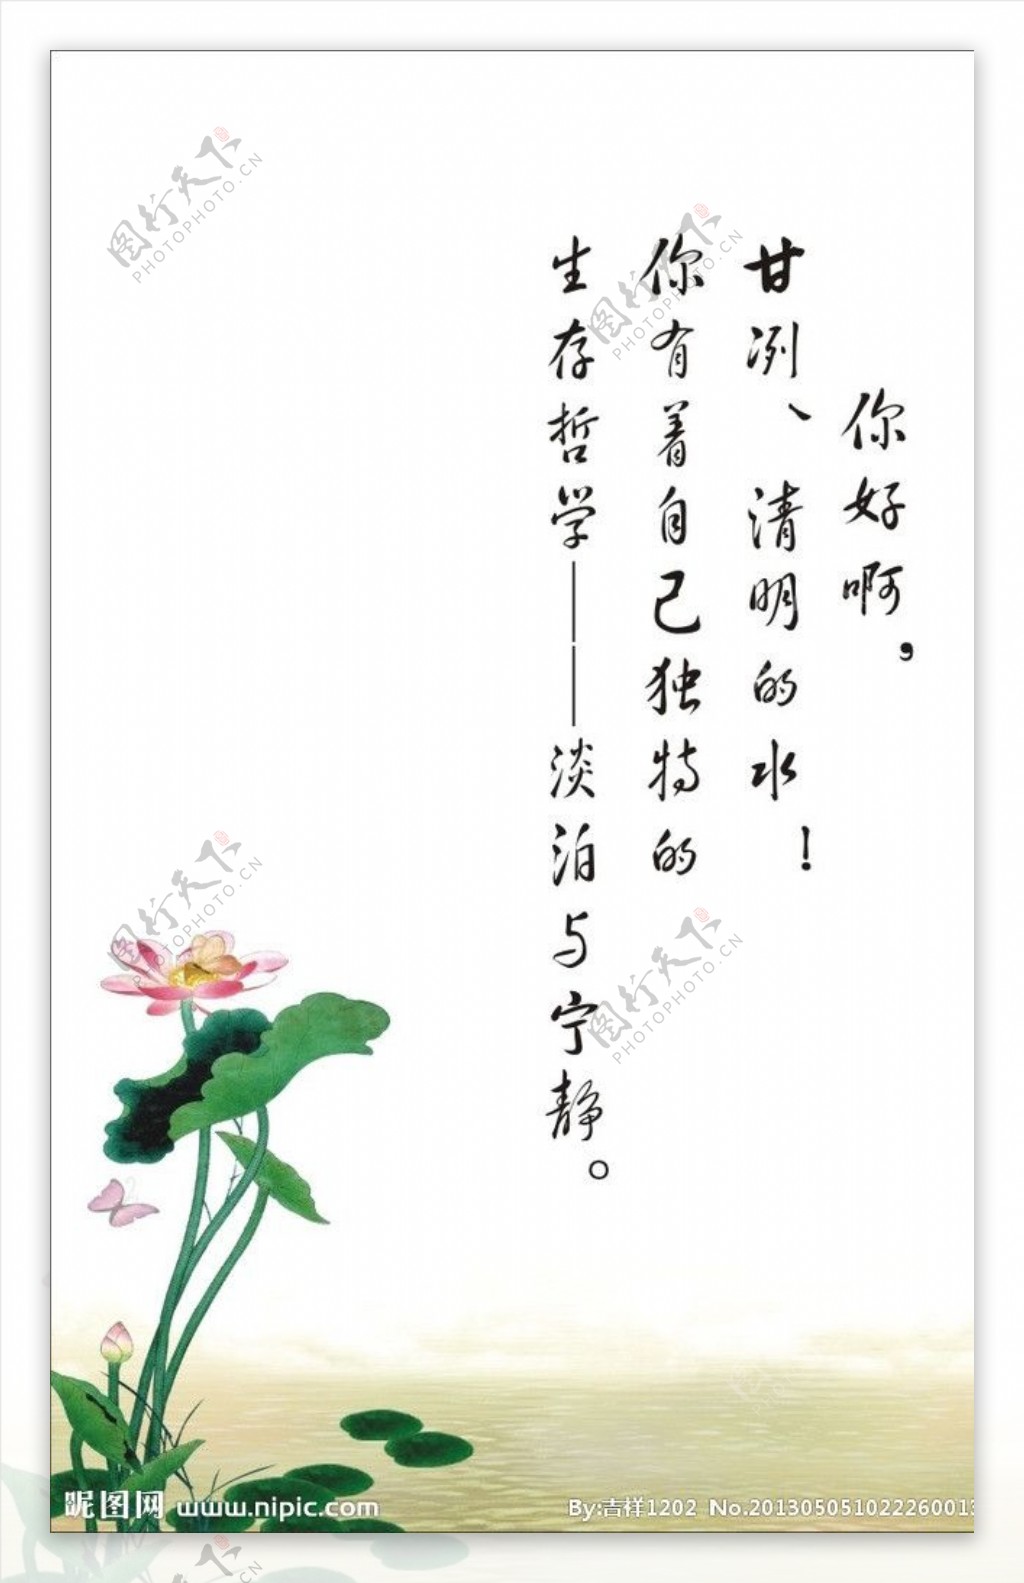 你好啊，
甘冽、清明的水！
你有着自己独特的
生存哲学——淡泊与宁静。
图行天下
PHOTOPHOTO.CN
图行天下
PHOTOPHOTO.CN
图行天下
PHOTOPHOTO.CN
图行天下
PHOTOPHOTO.CN
昵图网 www.nipic.com
By:吉样1202 No.201305051022260013